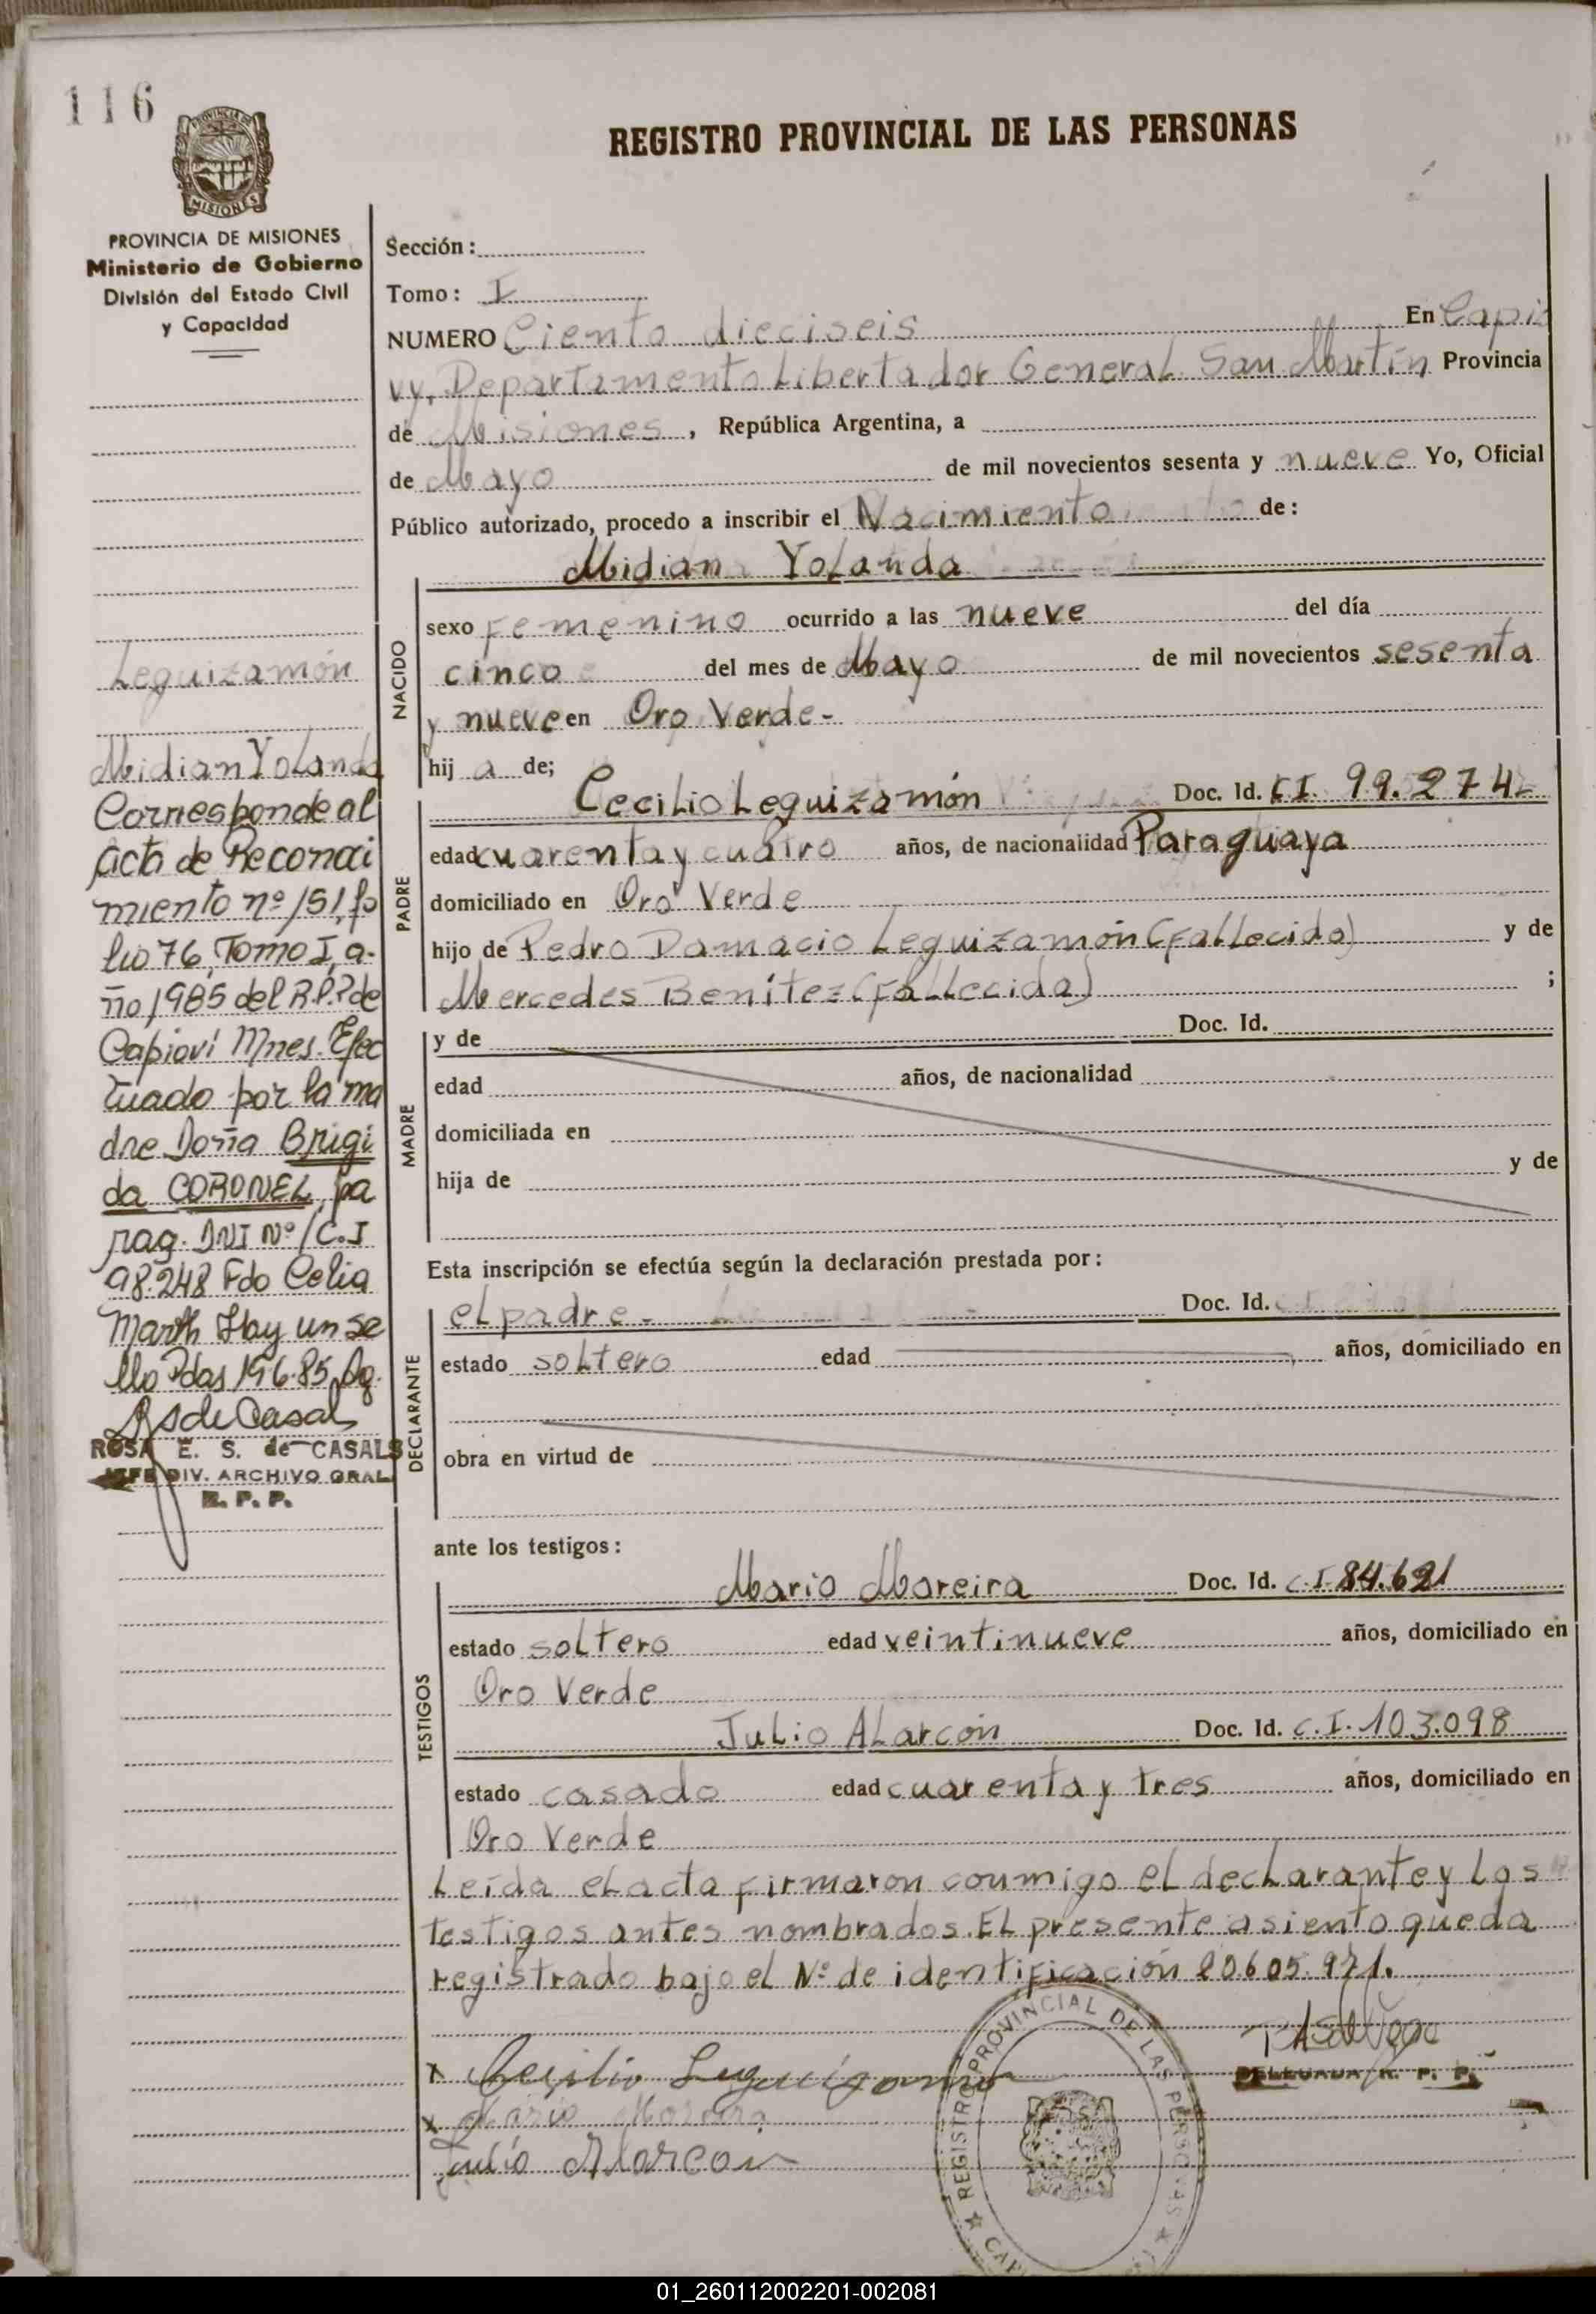 116
REGISTRO PROVINCIAL DE LAS PERSONAS
MISIONES
PROVINCIA DE MISIONES
Ministerio de Gobierno
División del Estado Civil
y Capacidad
Sección:
Tomo: I
NUMERO Ciento dieciseis En Capio
vy, Departamento Libertador General San Martín Provincia
de Misiones, República Argentina, a
de Mayo de mil novecientos sesenta y nueve Yo, Oficial
Público autorizado, procedo a inscribir el Nacimiento de:
Midian Yolanda
NACIDO
sexo Femenino ocurrido a las nueve del día
cinco del mes de Mayo de mil novecientos sesenta
y nueve en Oro Verde-
hij a de;
PADRE
Cecilio Leguizamón Doc. Id. CI 99.274
edad cuarenta y cuatro años, de nacionalidad Paraguaya
domiciliado en Oro Verde
hijo de Pedro Damacio Leguizamón (Fallecido) y de
Mercedes Benítez (Fallecida) ;
MADRE
y de Doc. Id.
edad años, de nacionalidad
domiciliada en
hija de y de
Esta inscripción se efectúa según la declaración prestada por:
DECLARANTE
el padre- Doc. Id.
estado soltero edad años, domiciliado en
obra en virtud de
ante los testigos:
TESTIGOS
Mario Moreira Doc. Id. C.I. 84.621
estado soltero edad veintinueve años, domiciliado en
Oro Verde
Julio Alarcón Doc. Id. C.I. 103.098
estado casado edad cuarenta y tres años, domiciliado en
Oro Verde
Leída el acta firmaron conmigo el declarante y los
testigos antes nombrados. El presente asiento queda
registrado bajo el Nº de identificación 20.605.971.
Cecilio Leguizamon
Mario Moreira
Julio Alarcon
REGISTRO PROVINCIAL DE LAS PERSONAS
R. P. P.
Leguizamón
Midian Yolanda
Corresponde al
acta de Reconoci
miento nº 151, fo
lio 76, Tomo I, a-
ño 1985 del R.P.P de
Capioví Mnes. Efec
tuado por la ma
dre Doña Brigi
da CORONEL, pa
rag. DNI Nº/C.I
98.248 Fdo Celia
Marth Hay un se
llo Pdas 19.6.85
ROSA E. S. de CASALS
JEFE DIV. ARCHIVO GRAL
R. P. P.
01_260112002201-002081